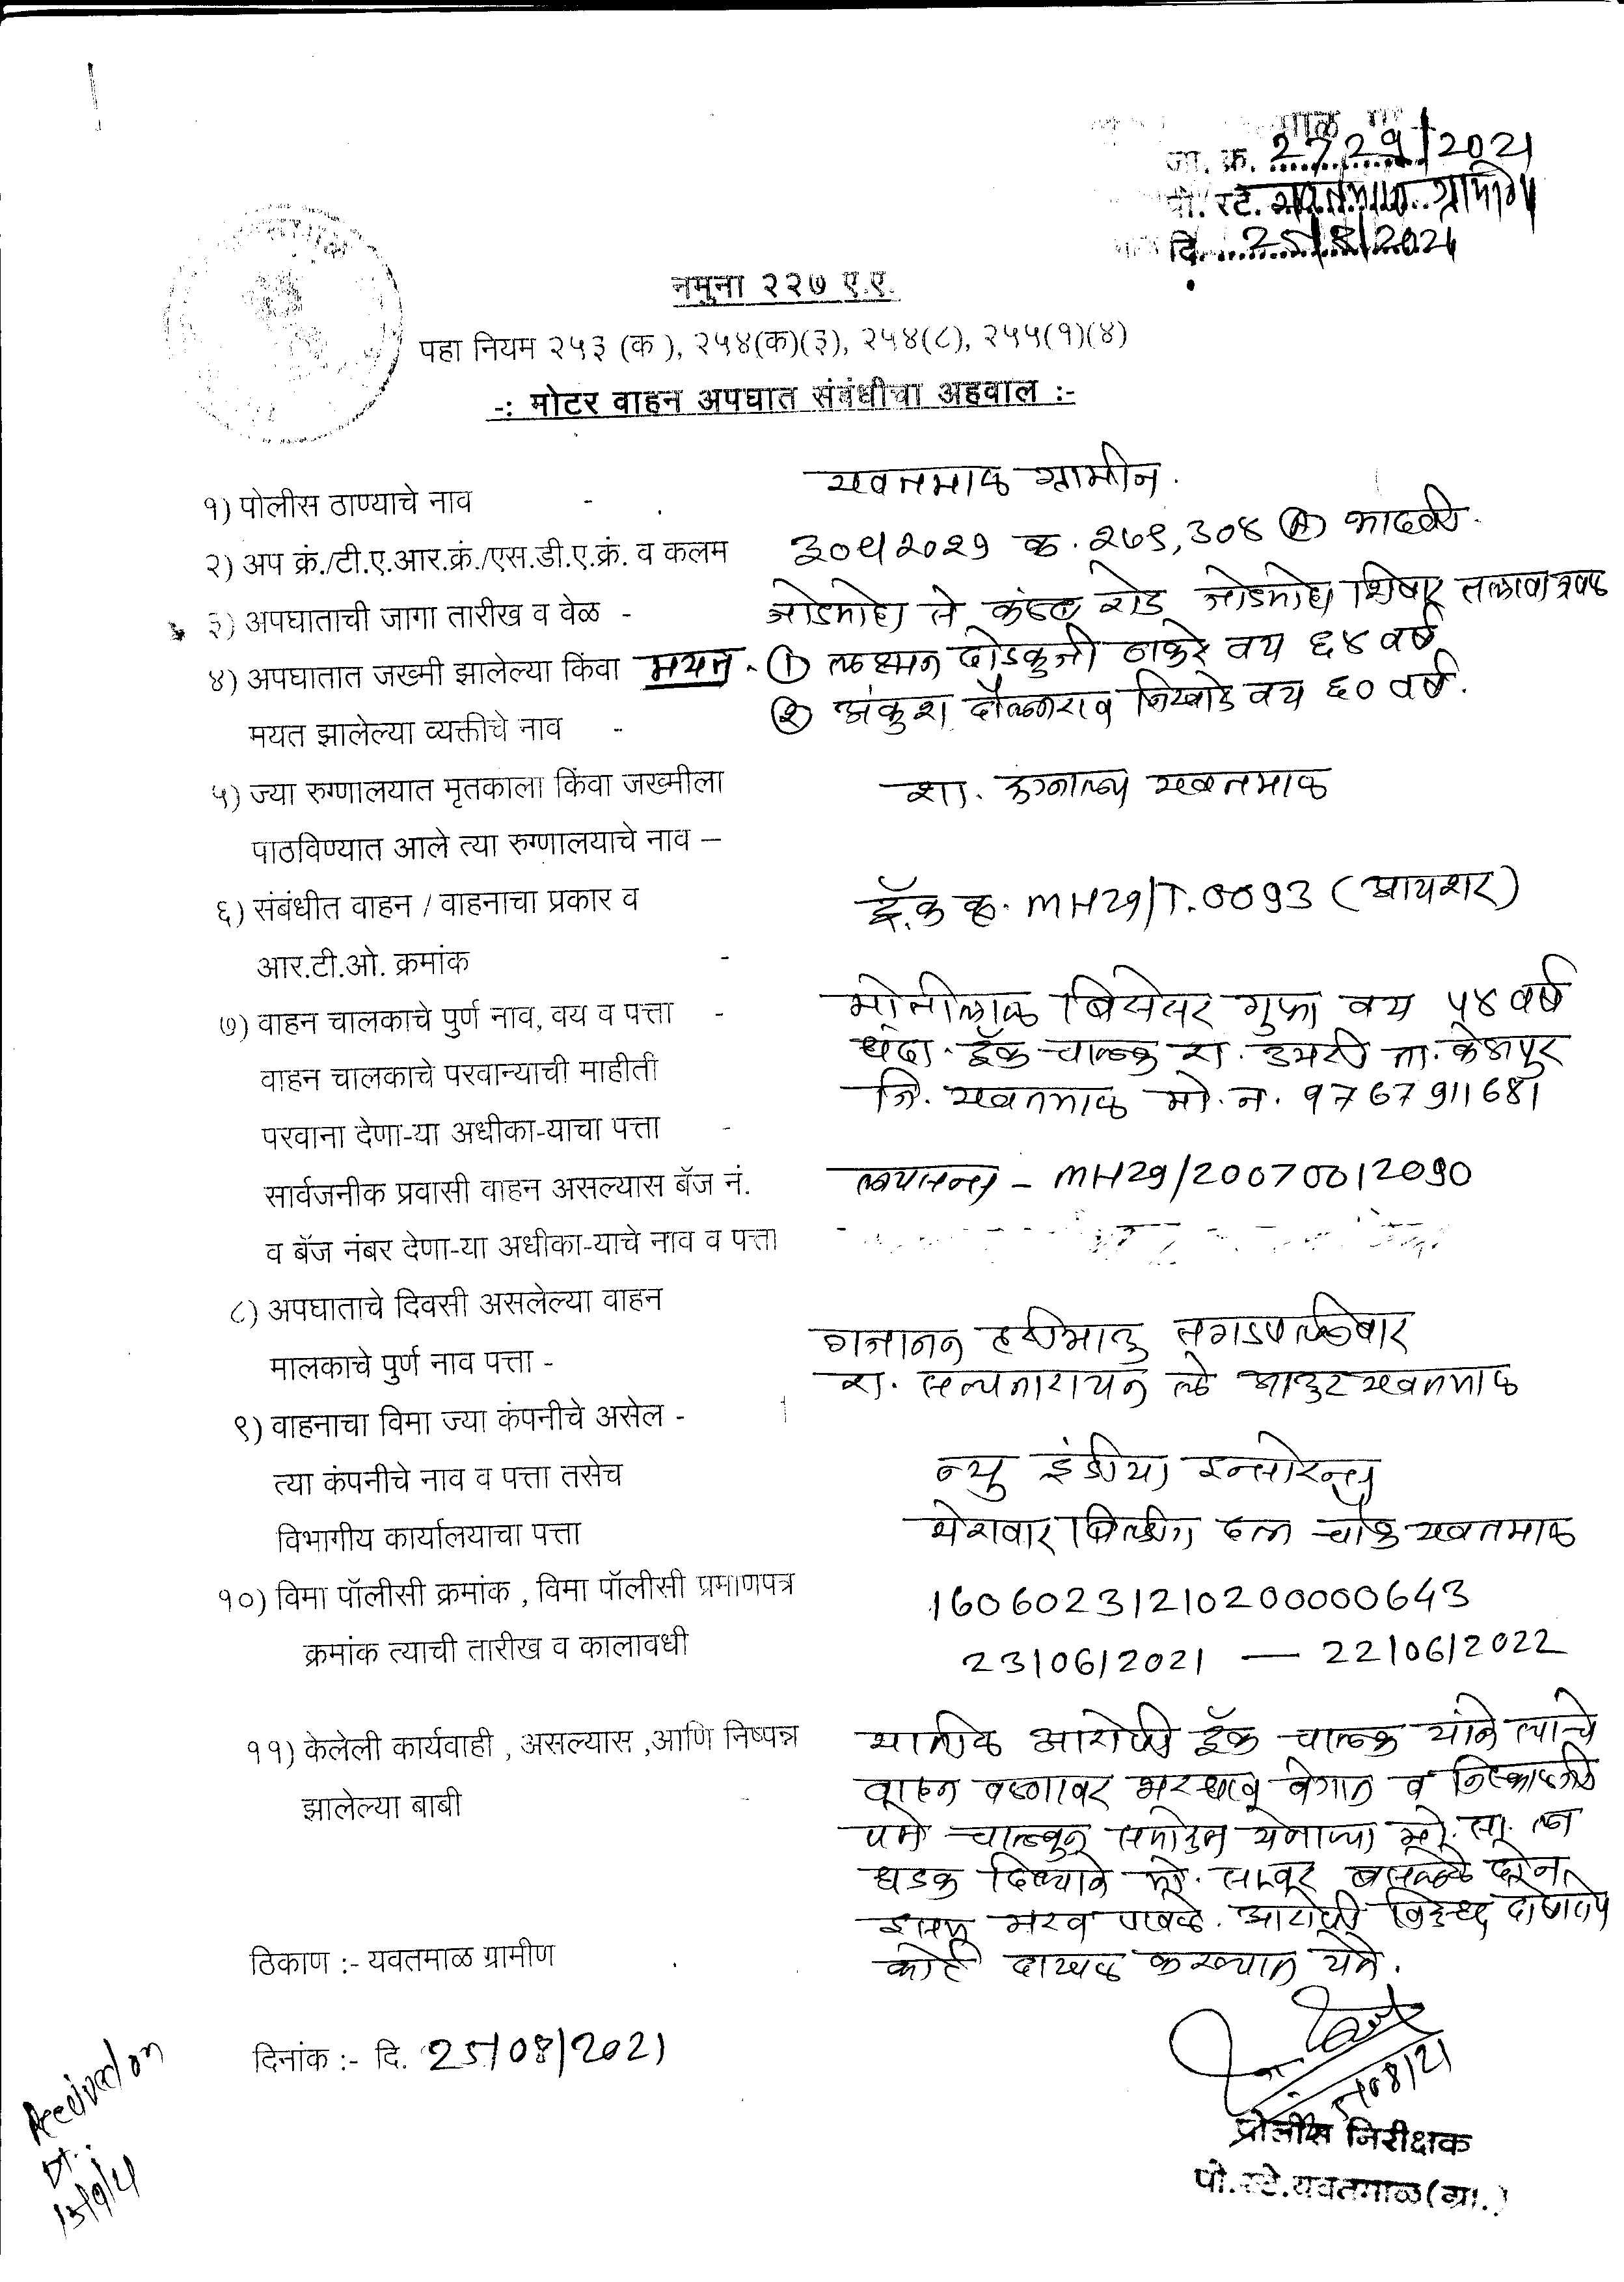 जा. क्र. 2729/2021
पो. स्टे. यवतमाळ ग्रामीण
दि. 25/8/2021
नमुना २२७ ए.ए.
पहा नियम २५३ (क ), २५४(क)(३), २५४(८), २५५(१)(४)
-: मोटर वाहन अपघात संबंधीचा अहवाल :-
१) पोलीस ठाण्याचे नाव - यवतमाळ ग्रामीन.
२) अप क्रं./टी.ए.आर.क्रं./एस.डी.ए.क्रं. व कलम ३०५/२०२१ क. २७९, ३०४ (A) भादवी.
३) अपघाताची जागा तारीख व वेळ - जोडमोहा ते कळंब रोड जोडमोहा शिवार तलावाजवळ
४) अपघातात जख्मी झालेल्या किंवा मयत - (1) लक्ष्मन दोडकुजी ठाकरे वय ६४ वर्ष
मयत झालेल्या व्यक्तीचे नाव - (2) अंकुश दौलतराव वय ६० वर्ष.
५) ज्या रुग्णालयात मृतकाला किंवा जख्मीला शा. रुग्नालय यवतमाळ
पाठविण्यात आले त्या रुग्णालयाचे नाव –
६) संबंधीत वाहन / वाहनाचा प्रकार व ट्रॅक क्र. MH29/T.0093 (आयशर)
आर.टी.ओ. क्रमांक -
७) वाहन चालकाचे पुर्ण नाव, वय व पत्ता - मोतीलाल बिसेसर गुप्ता वय ५४ वर्ष
वाहन चालकाचे परवान्याची माहीती धंदा. ट्रॅक चालक रा. उमरी ता. केळापुर
परवाना देणा-या अधीका-याचा पत्ता - जि. यवतमाळ मो. न. 9767911681
सार्वजनीक प्रवासी वाहन असल्यास बॅज नं. लायसन्स - MH29/20070012090
व बॅज नंबर देणा-या अधीका-याचे नाव व पत्ता
८) अपघाताचे दिवसी असलेल्या वाहन
मालकाचे पुर्ण नाव पत्ता - गजानन हरीभाऊ
रा. सत्यनारायन ले आउट यवतमाळ
९) वाहनाचा विमा ज्या कंपनीचे असेल -
त्या कंपनीचे नाव व पत्ता तसेच न्यु इंडीया इन्सोरन्स
विभागीय कार्यालयाचा पत्ता येरावार बिल्डींग दत्त चौक यवतमाळ
१०) विमा पॉलीसी क्रमांक , विमा पॉलीसी प्रमाणपत्र 16060231210200000643
क्रमांक त्याची तारीख व कालावधी 23/06/2021 — 22/06/2022
११) केलेली कार्यवाही , असल्यास ,आणि निष्पन्न यातील आरोपी ट्रॅक चालक यांने त्याचे
झालेल्या बाबी - वाहन भरधाव वेगात व निष्काळजी
पने चालवुन समोरुन येनाऱ्या मो. सा. ला
धडक दिल्याने मो. सा. वर बसलेले दोन
इसम मरन पावले. आरोपी विरुध्द दोषारोप
कोर्ट दाखल करण्यात येते.
ठिकाण :- यवतमाळ ग्रामीण
दिनांक :- दि. 25/08/2021
25/08/21
पोलीस निरीक्षक
पो.स्टे.यवतमाळ(ग्रा.)
Received on
Dt.:
13/9/21